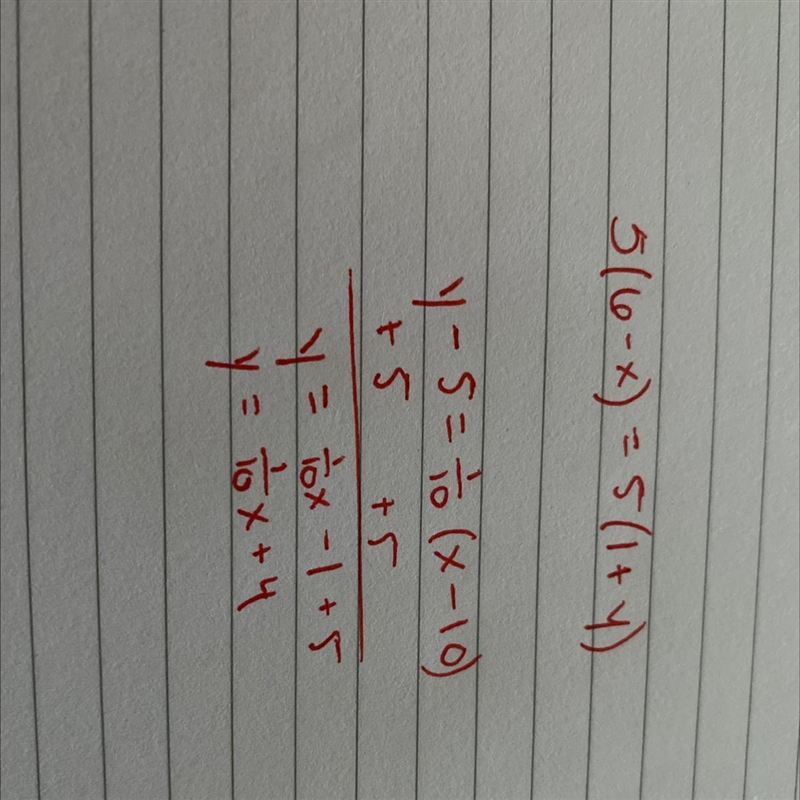 5(6-x) = 5(1+y)
y - 5 = 1/10 (x - 10)
+5 +5
y = 1/10 x - 1 + 5
y = 1/10 x + 4